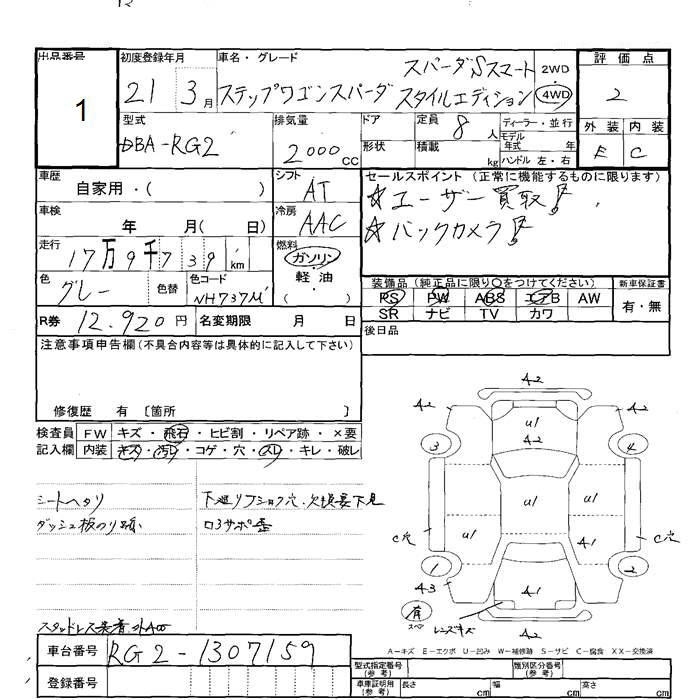 出品番号
1
初度登録年月
21 3月
車名・グレード
スパーダSスマート
ステップワゴンスパーダ スタイルエディション
2WD
4WD
評価点
2
外装 内装
E C
型式
DBA-RG2
排気量
2000cc
ドア
形状
定員 8人
積載 kg
ディーラー・並行
モデル年式 年
ハンドル 左・右
車歴
自家用・( )
シフト
AT
セールスポイント (正常に機能するものに限ります)
☆ユーザー買取!
☆バックカメラ!
車検
年 月( 日)
冷房
AAC
走行
17万9千739km
燃料
ガソリン・
軽油・
( )
色
グレー
色替
色コード
NH737M
装備品 (純正品に限り○をつけてください)
新車保証書
PS PW ABS エアB AW
有・無
SR ナビ TV カワ
R券 12.920円
名変期限 月 日
後日品
注意事項申告欄(不具合内容等は具体的に記入して下さい)
修復歴 有 〔箇所 〕
検査員 FW キズ・飛石・ヒビ割・リペア跡・×要
記入欄 内装 キズ・汚レ・コゲ・穴・スレ・キレ・破レ
シートヘタリ
ダッシュ板のり跡
下廻リ
A2
A2
A2
U1
A2
3
4
U1
U1
U1
A1
C穴
C穴
1
2
A3
A1
A2
有
スペ
レンズキズ
A2
スタッドレス装着
A−キズ E−エクボ U−凹み W−補修跡 S−サビ C−腐食 XX−交換済
車台番号 RG2-1307159
登録番号
型式指定番号(参考)
類別区分番号(参考)
車庫証明用(参考) 長さ cm 幅 cm 高さ cm